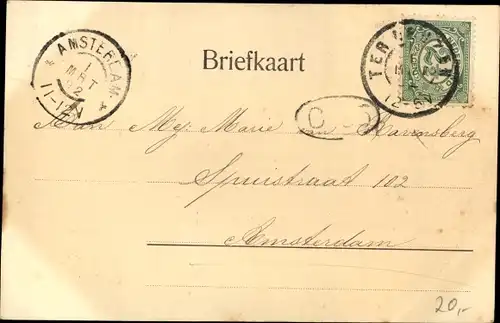 AMSTERDAM
1 MRT 02
11-12V
Briefkaart
TER NEUZEN
12-6V
Aan Mej: Marie van Ravensberg
Spuistraat 102
Amsterdam
20,-